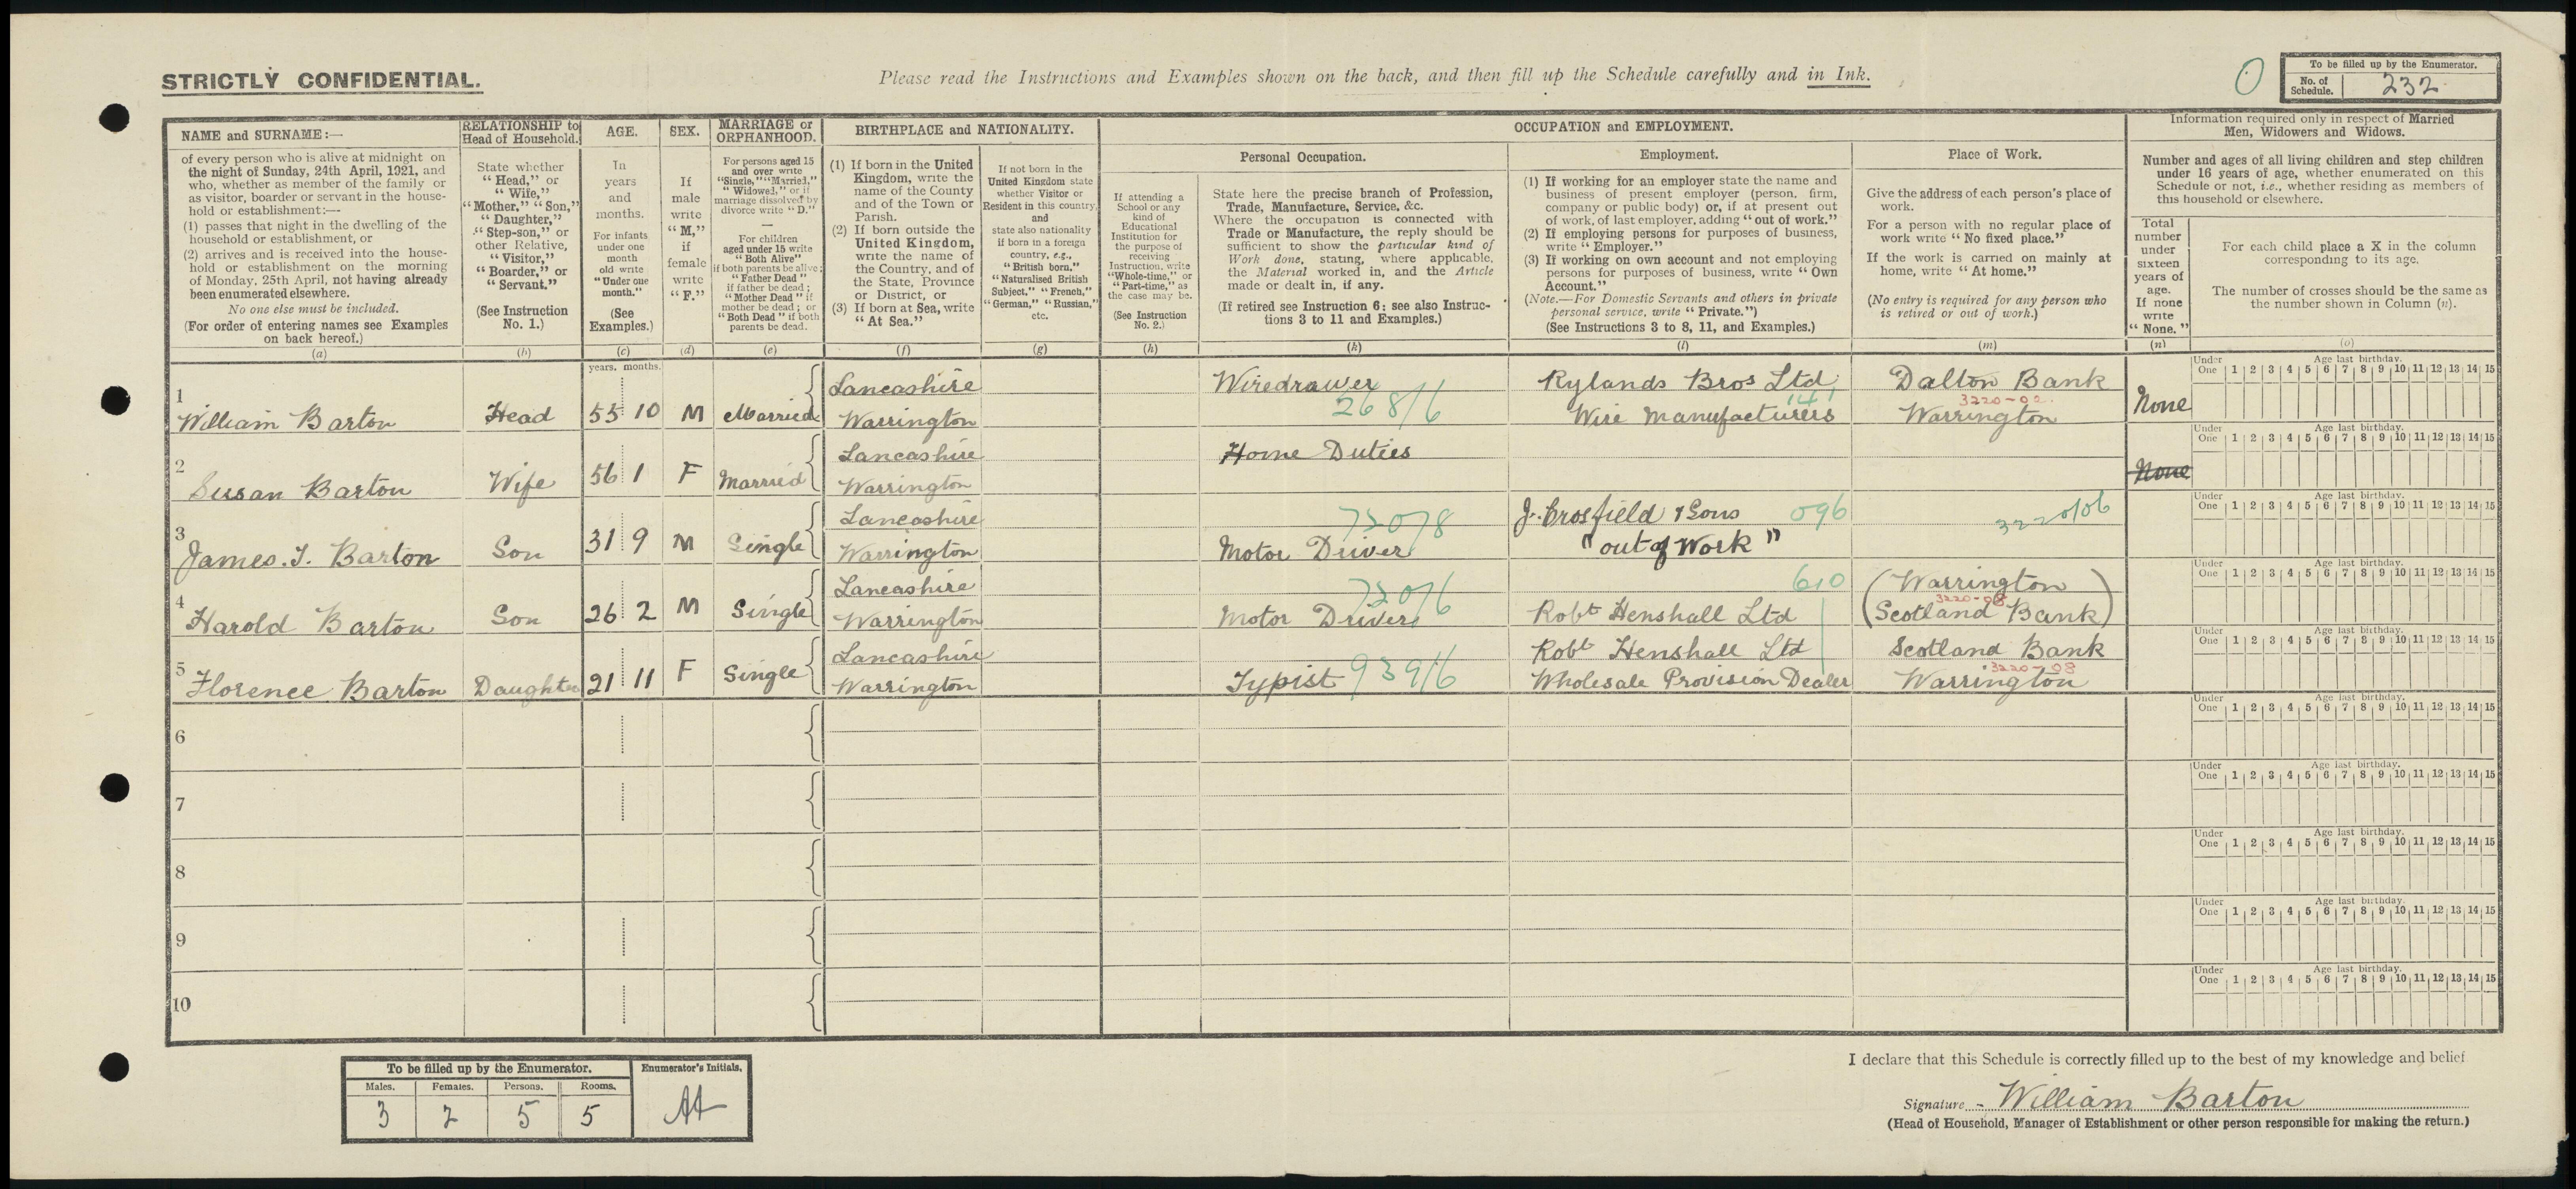 STRICTLY CONFIDENTIAL.
Please read the Instructions and Examples shown on the back, and then fill up the Schedule carefully and in Ink.
0
To be filled up by the Enumerator.
No. of Schedule. 232
NAME and SURNAME:—
of every person who is alive at midnight on
the night of Sunday, 24th April, 1921, and
who, whether as member of the family or
as visitor, boarder or servant in the house-
hold or establishment:—
(1) passes that night in the dwelling of the
household or establishment, or
(2) arrives and is received into the house-
hold or establishment on the morning
of Monday, 25th April, not having already
been enumerated elsewhere.
No one else must be included.
(For order of entering names see Examples
on back hereof.)
(a)
RELATIONSHIP to
Head of Household.
State whether
"Head," or
"Wife,"
"Mother," "Son,"
"Daughter,"
"Step-son," or
other Relative,
"Visitor,"
"Boarder," or
"Servant."
(See Instruction
No. 1.)
(b)
AGE.
In
years
and
months.
For infants
under one
month
old write
"Under one
month."
(See
Examples.)
(c)
SEX.
If
male
write
"M,"
if
female
write
"F."
(d)
MARRIAGE or
ORPHANHOOD.
For persons aged 15
and over write
"Single," "Married,"
"Widowed," or if
marriage dissolved by
divorce write "D."
—
For children
aged under 15 write
"Both Alive"
if both parents be alive;
"Father Dead"
if father be dead;
"Mother Dead" if
mother be dead; or
"Both Dead" if both
parents be dead.
(e)
BIRTHPLACE and NATIONALITY.
(1) If born in the United
Kingdom, write the
name of the County
and of the Town or
Parish.
(2) If born outside the
United Kingdom,
write the name of
the Country, and of
the State, Province
or District, or
(3) If born at Sea, write
"At Sea."
(f)
If not born in the
United Kingdom state
whether Visitor or
Resident in this country,
and
state also nationality
if born in a foreign
country, e.g.,
"British born,"
"Naturalised British
Subject," "French,"
"German," "Russian,"
etc.
(g)
OCCUPATION and EMPLOYMENT.
If attending a
School or any
kind of
Educational
Institution for
the purpose of
receiving
Instruction, write
"Whole-time," or
"Part-time," as
the case may be.
(See Instruction
No. 2.)
(h)
Personal Occupation.
State here the precise branch of Profession,
Trade, Manufacture, Service, &c.
Where the occupation is connected with
Trade or Manufacture, the reply should be
sufficient to show the particular kind of
Work done, stating, where applicable,
the Material worked in, and the Article
made or dealt in, if any.
(If retired see Instruction 6: see also Instruc-
tions 3 to 11 and Examples.)
(k)
Employment.
(1) If working for an employer state the name and
business of present employer (person, firm,
company or public body) or, if at present out
of work, of last employer, adding "out of work."
(2) If employing persons for purposes of business,
write "Employer."
(3) If working on own account and not employing
persons for purposes of business, write "Own
Account."
(Note.—For Domestic Servants and others in private
personal service, write "Private.")
(See Instructions 3 to 8, 11, and Examples.)
(l)
Place of Work.
Give the address of each person's place of
work.
For a person with no regular place of
work write "No fixed place."
If the work is carried on mainly at
home, write "At home."
(No entry is required for any person who
is retired or out of work.)
(m)
Information required only in respect of Married
Men, Widowers and Widows.
Number and ages of all living children and step children
under 16 years of age, whether enumerated on this
Schedule or not, i.e., whether residing as members of
this household or elsewhere.
Total
number
under
sixteen
years of
age.
If none
write
"None."
(n)
For each child place a X in the column
corresponding to its age.
The number of crosses should be the same as
the number shown in Column (n).
(o)
years. months.
Under One Age last birthday. 1 2 3 4 5 6 7 8 9 10 11 12 13 14 15
1 William Barton Head 55 10 M Married Lancashire Warrington Wiredrawer 268/6 Rylands Bros Ltd, Wire Manufacturers 141 Dalton Bank Warrington 3220-02. None
Under One Age last birthday. 1 2 3 4 5 6 7 8 9 10 11 12 13 14 15
2 Susan Barton Wife 56 1 F Married Lancashire Warrington Home Duties None
Under One Age last birthday. 1 2 3 4 5 6 7 8 9 10 11 12 13 14 15
3 James. T. Barton Son 31 9 M Single Lancashire Warrington Motor Driver 720/8 J. Crosfield & Sons "out of Work" 096 3220/06
Under One Age last birthday. 1 2 3 4 5 6 7 8 9 10 11 12 13 14 15
4 Harold Barton Son 26 2 M Single Lancashire Warrington Motor Driver 720/6 Robt Henshall Ltd 610 (Warrington Scotland Bank) 3220-08
Under One Age last birthday. 1 2 3 4 5 6 7 8 9 10 11 12 13 14 15
5 Florence Barton Daughter 21 11 F Single Lancashire Warrington Typist 939/6 Robt Henshall Ltd Wholesale Provision Dealer Scotland Bank Warrington 3220-08
Under One Age last birthday. 1 2 3 4 5 6 7 8 9 10 11 12 13 14 15
6
Under One Age last birthday. 1 2 3 4 5 6 7 8 9 10 11 12 13 14 15
7
Under One Age last birthday. 1 2 3 4 5 6 7 8 9 10 11 12 13 14 15
8
Under One Age last birthday. 1 2 3 4 5 6 7 8 9 10 11 12 13 14 15
9
Under One Age last birthday. 1 2 3 4 5 6 7 8 9 10 11 12 13 14 15
10
To be filled up by the Enumerator.
Males. Females. Persons. Rooms.
3 2 5 5
Enumerator's Initials.
I declare that this Schedule is correctly filled up to the best of my knowledge and belief
Signature William Barton
(Head of Household, Manager of Establishment or other person responsible for making the return.)